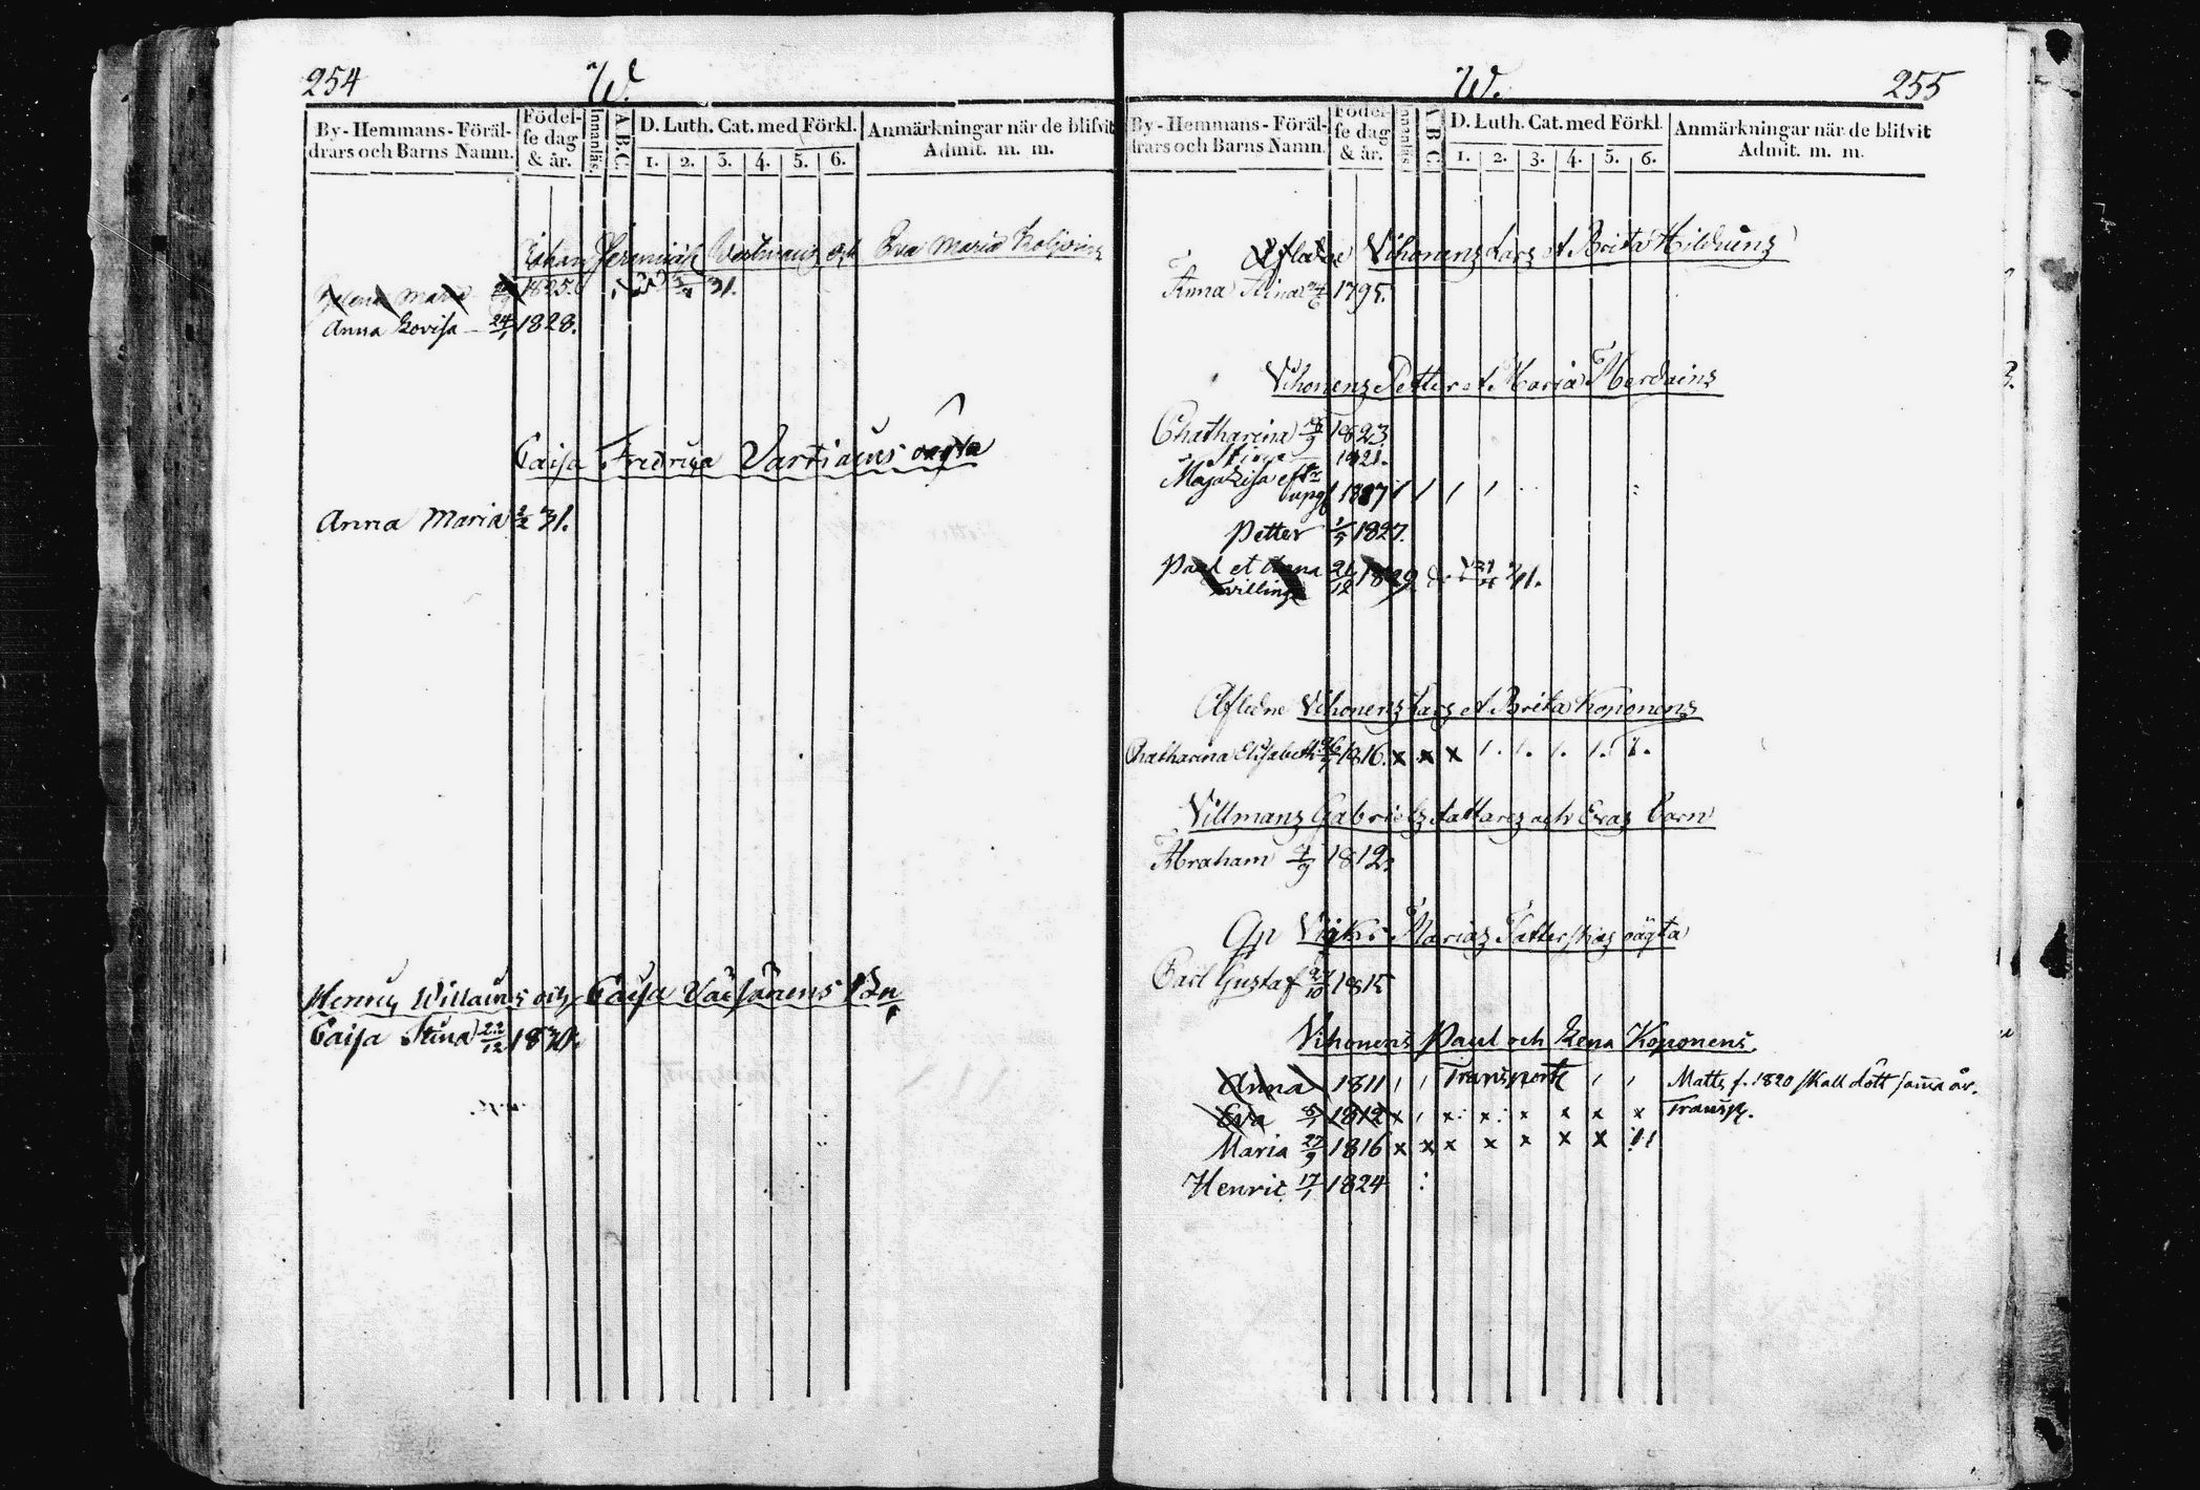 254
W.
By-Hemmans-Föräl-
drars och Barns Namn.
Födel-
se dag
& år.
Innanläs.
A.B.C.
D. Luth. Cat. med Förkl.
1. 2. 3. 4. 5. 6.
Anmärkningar när de blifvit
Admit. m. m.
Johan Jeremias och Eva Maria
Helena Maria 1825. 31.
Anna Lovisa 24/1 1828.
Caisa Fredrica Vartiains oägta
Anna Maria 2/2 31.
Henric Willains och Caisa Väisäinens Bn
Caisa Stina 22/12 1830.
W.
255
By-Hemmans-Föräl-
drars och Barns Namn.
Födel-
se dag
& år.
Innanläs
A B C
D. Luth. Cat. med Förkl.
1. 2. 3. 4. 5. 6.
Anmärkningar när de blifvit
Admit. m. m.
Afledne Vihonens Lars et Brita
Anna Stina 1795.
Vihonens Petter et Maria
Chatharina 1823.
Stina 1821.
Maja Lisa
Petter 1/5 1827.
Paul et Anna 21/12 1829 31.
Tvillingar
Afledne Vihonens Lars et Brita Koponens
Chatharina Elisabeth 1816. x x x 1. 1. 1. 1. 1.
Villmans Gabriels tattares och Evas barn
Abraham 1812.
Marias Tatterskas oägta
Carl Gustaf 27/10 1815
Vihonens Paul och Lena Koponens
Anna 1811 Transport Matts f. 1820 skall dött sama år.
Eva 1812 x x x x x x x Transp.
Maria 27/9 1816 x x x x x x x
Henric 17/1 1824